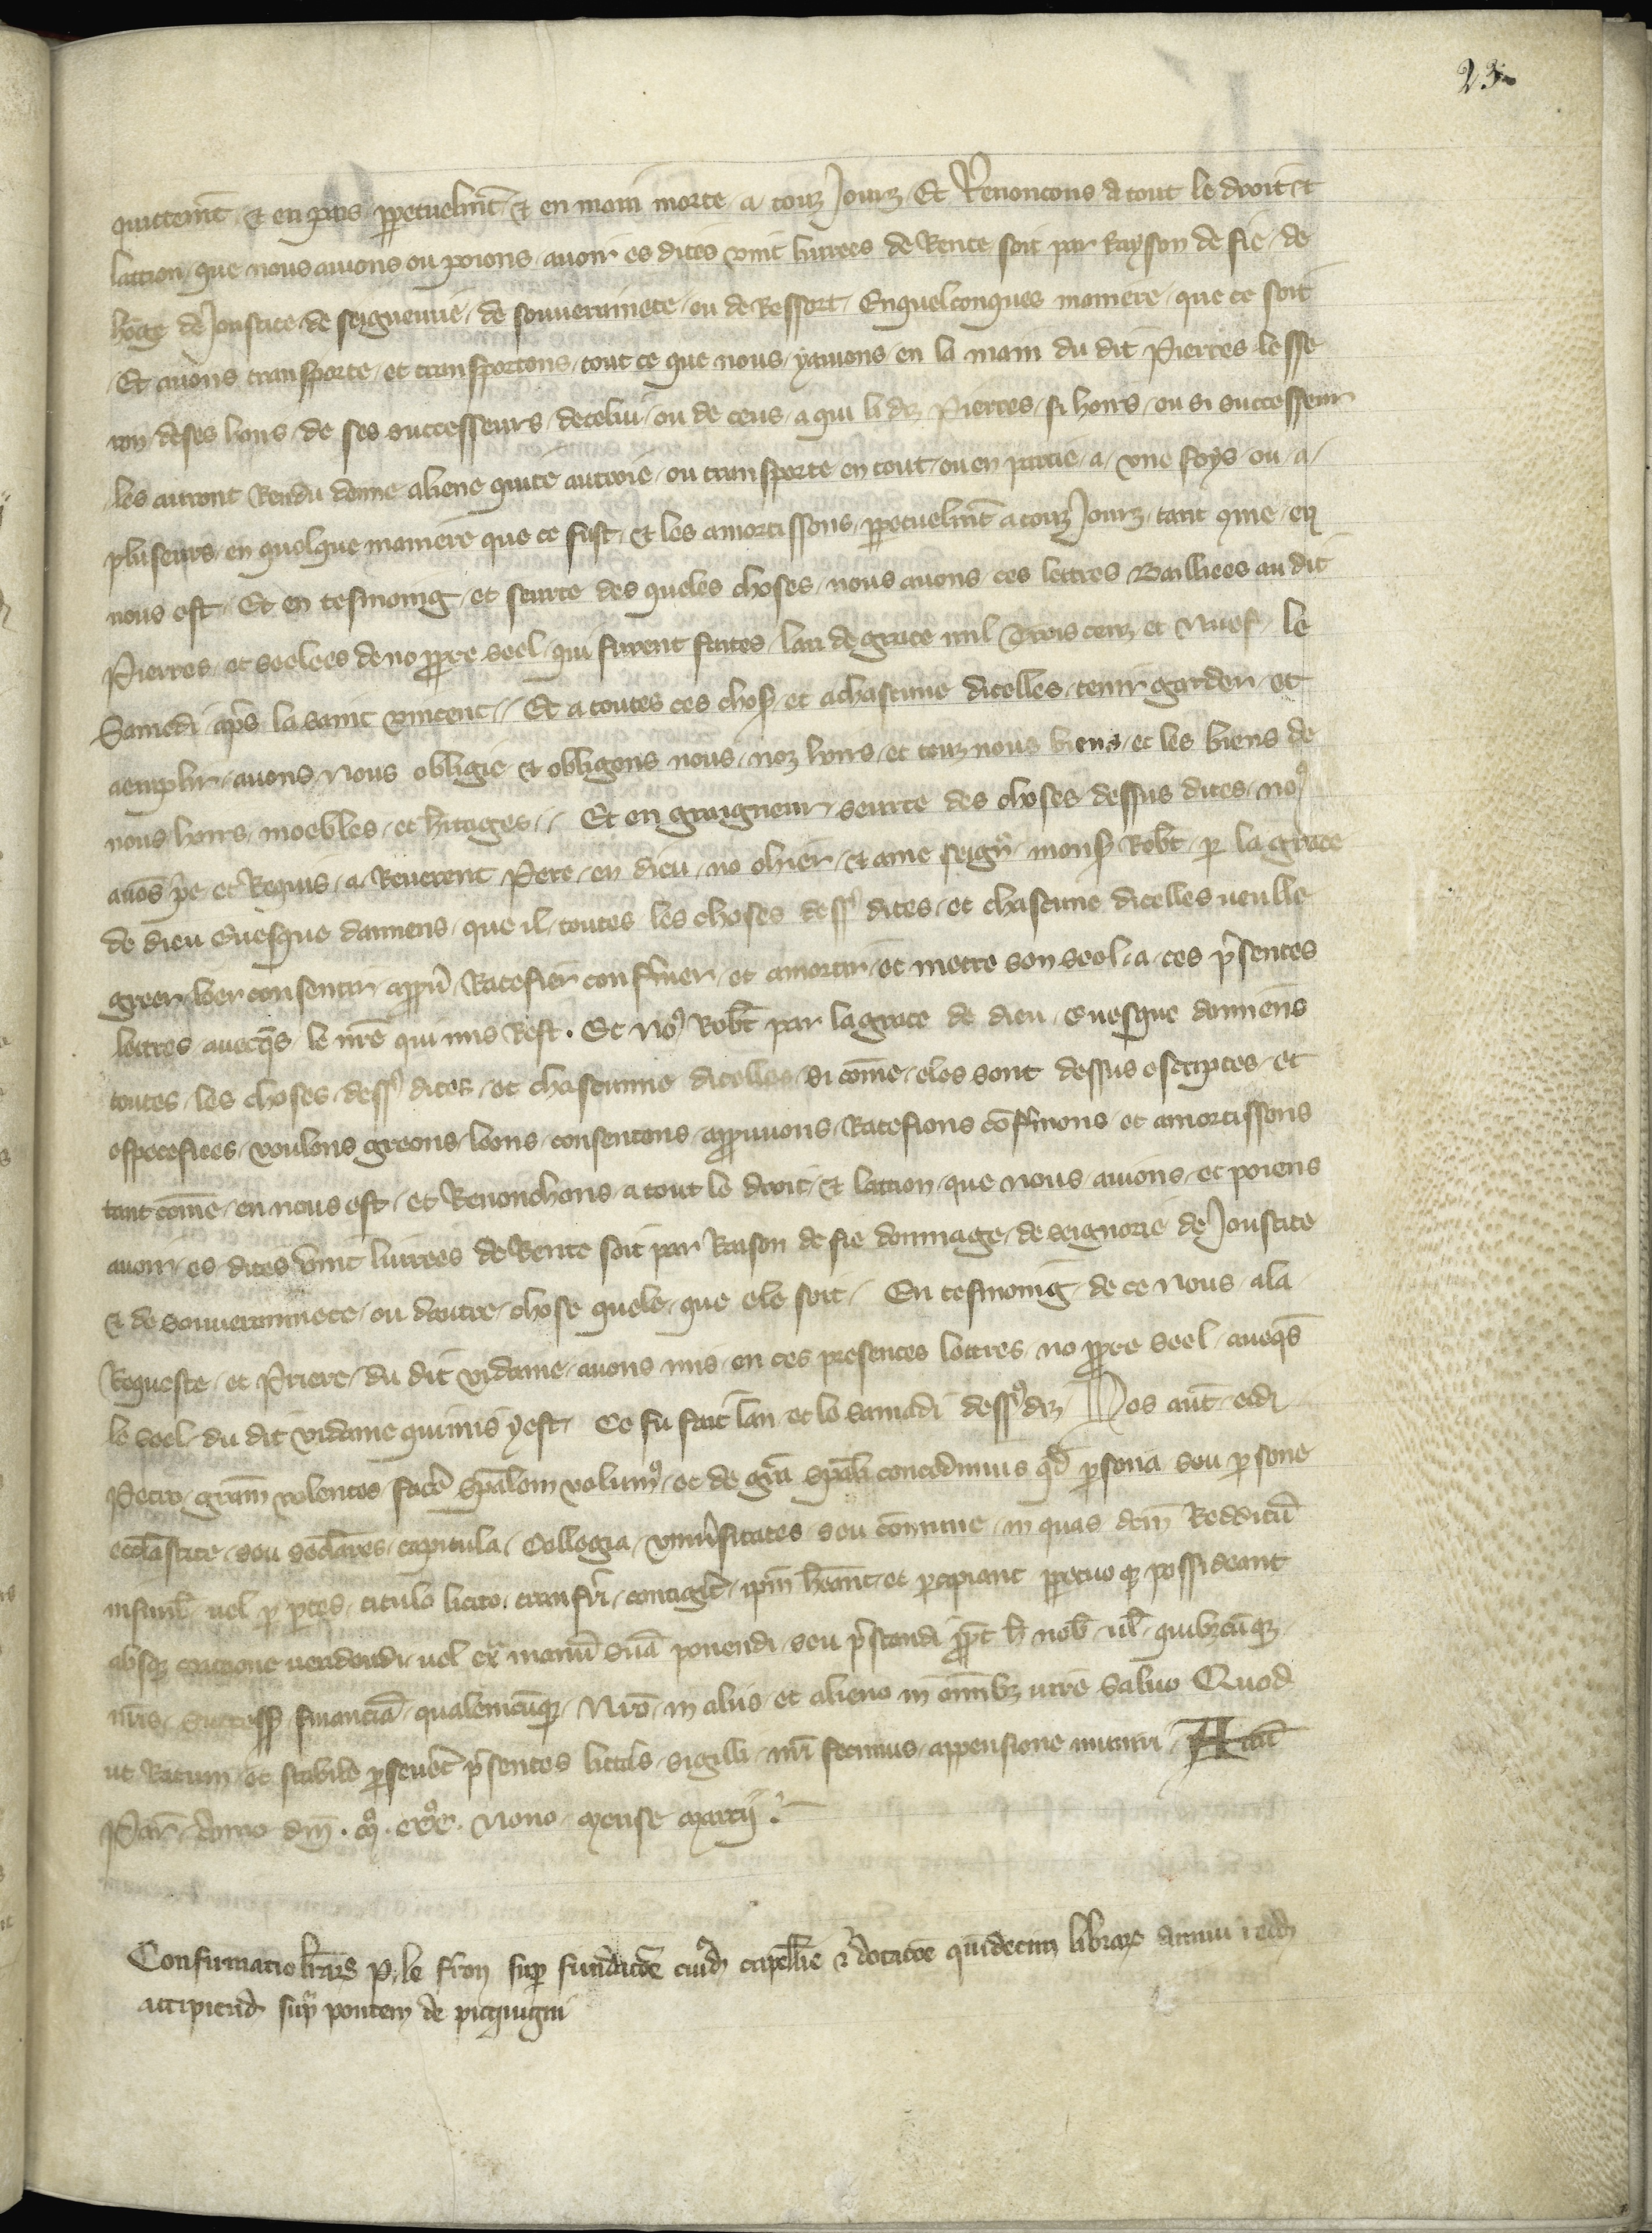 23
quittemt et en pais ppetuelmt et en main morte a touz Jourz Et Renoncons a tout le droit et
laction que nous auions ou poions auoir es dites vint liurees de Rente soit par Rayson de fie de
homage de Joustice de seigneurie de souuerainete ou de Ressort Enquelconques maniere que ce soit
Et auons transporte et transportons tout ce que nous yauions en la main du dit Pierres lesse
ron deses hoirs de ses successeurs decelui ou de ceus a qui li dz Pierres si hoirs ou si successeur
les auront Rendu donne aliene quite autroie ou transporte en tout ou en partie a vne foys ou a
pluseurs en quelque maniere que ce fust et les amortissons ppetuelmt a touz Jourz tant qme en
nous est Et en tesmoing et seurte des queles choses nous auons ces lettres Bailliees au dit
Pierres et seelees de no ppre seel qui furent faites lan de grace mil Trois cenz et Nuef le
Samedi aps la saint vincent Et a toutes ces choses et achascune dicelles tenir garder et
aemplir auons nous obligie et obligons nous noz hoirs et touz nous biens et les biens de
nous hoirs moebles et hitages Et en graigneur seurte des choses dessus dites no9
auos pie et Requis a Reuerent Pere en dieu no chier et ame seignr mons Robt p la grace
de dieu Euesque damiens que il toutes les choses dess9 dites et chascune dicelles veulle
greer loer consentir appuer Ratefier confmer et amortir et mettre son seel a ces psentes
lettres auecqs le nre qui mis Rest . Et No9 Robt par lagrace de dieu euesque damiens
toutes les choses dess9 dites et chascunne dicelles si come eles sont dessus escriptes et
especefiees voulons greons loons consentons appuuons Ratefions cofmons et amortissons
tant come en nous est et Renonchons a tout le droit et laction que nous auions et poiens
auoir es dites vint liurees de Rente soit par Raison de fie dommage de seignorie de Joustice
et de souuerainnete ou dautre chose quele que ele soit En tesmoing de ce nous ala
Requeste et Priere du dit vidame auons mis en ces presentes lettres no ppre seel aueqs
le seel du dit vidame qui mis yest Ce fu fait lan et le samadi dess9 dz Nos aut eidem
Petro gram volentes face spalem volum9 et de gra spali concedimus qd psona seu psone
ecclastice seu seclares capitula Collegia vniusitates seu comune in quas dem Redditu
insimul vel p ptes titulo licito transfri contiget ipm heant et pcipiant ppetuo qz possideant
absqz coactione vendendi vel ex manu sua ponendi seu pstandi ppt h nob vl quibzcuqz
nris successs financia qualemcuqz Nro in aliis et alieno in omibz iure saluo Quod
ut Ratum et stabile pseuet psentes litteras sigilli nri fecimus appensione muniri Actu
Par anno dni . mo . cccmo . Nono mense marcij .
Confirmatio lrars p. le fron sup fundacoe cuiusd capellie et dotacoe quidecim librarz annui redd
accipiend supra pontem de piquigni